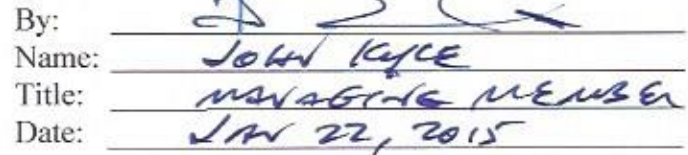 By:
Name: JOHN KYLE
Title: MANAGING MEMBER
Date: JAN 22, 2015